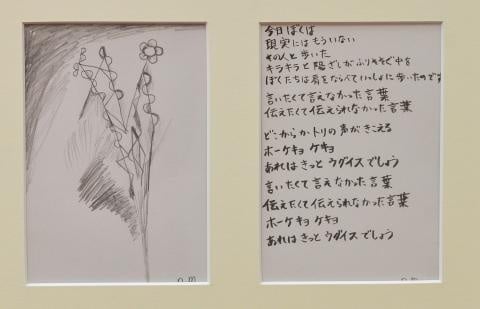 今日ぼくは
現実にはもういない
その人と歩いた
キラキラと陽ざしがふりそそぐ中を
ぼくたちは肩をならべていっしょに歩いたのです
言いたくて言えなかった言葉
伝えたくて伝えられなかった言葉
どこからかトリの声がきこえる
ホーケキョ ケキョ
あれはきっとウグイスでしょう
言いたくて言えなかった言葉
伝えたくて伝えられなかった言葉
ホーケキョ ケキョ
あれはきっとウグイスでしょう